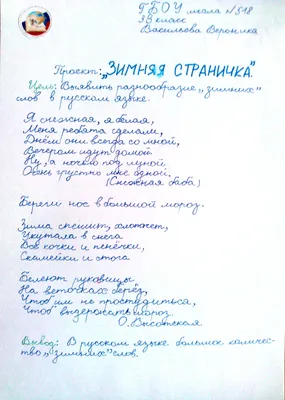 ГБОУ школа №518
3В класс
Васильева Вероника
Проект: „ЗИМНЯЯ СТРАНИЧКА"
Цель: Выявить разнообразие „зимних"
слов в русском языке.
Я снежная, я белая,
Меня ребята сделали,
Днём они всегда со мной,
Вечером идут домой.
Ну, а ночью под луной
Очень грустно мне одной.
(Снежная баба)
Береги нос в большой мороз.
Зима спешит, хлопочет,
Укутала в снега
Все кочки и пенёчки,
Скамейки и стога
Белеют рукавицы
На веточках берёз,
Чтоб им не простудиться,
Чтоб выдержать мороз.
О. Высотская
Вывод: В русском языке большое количес-
тво „зимних" слов.